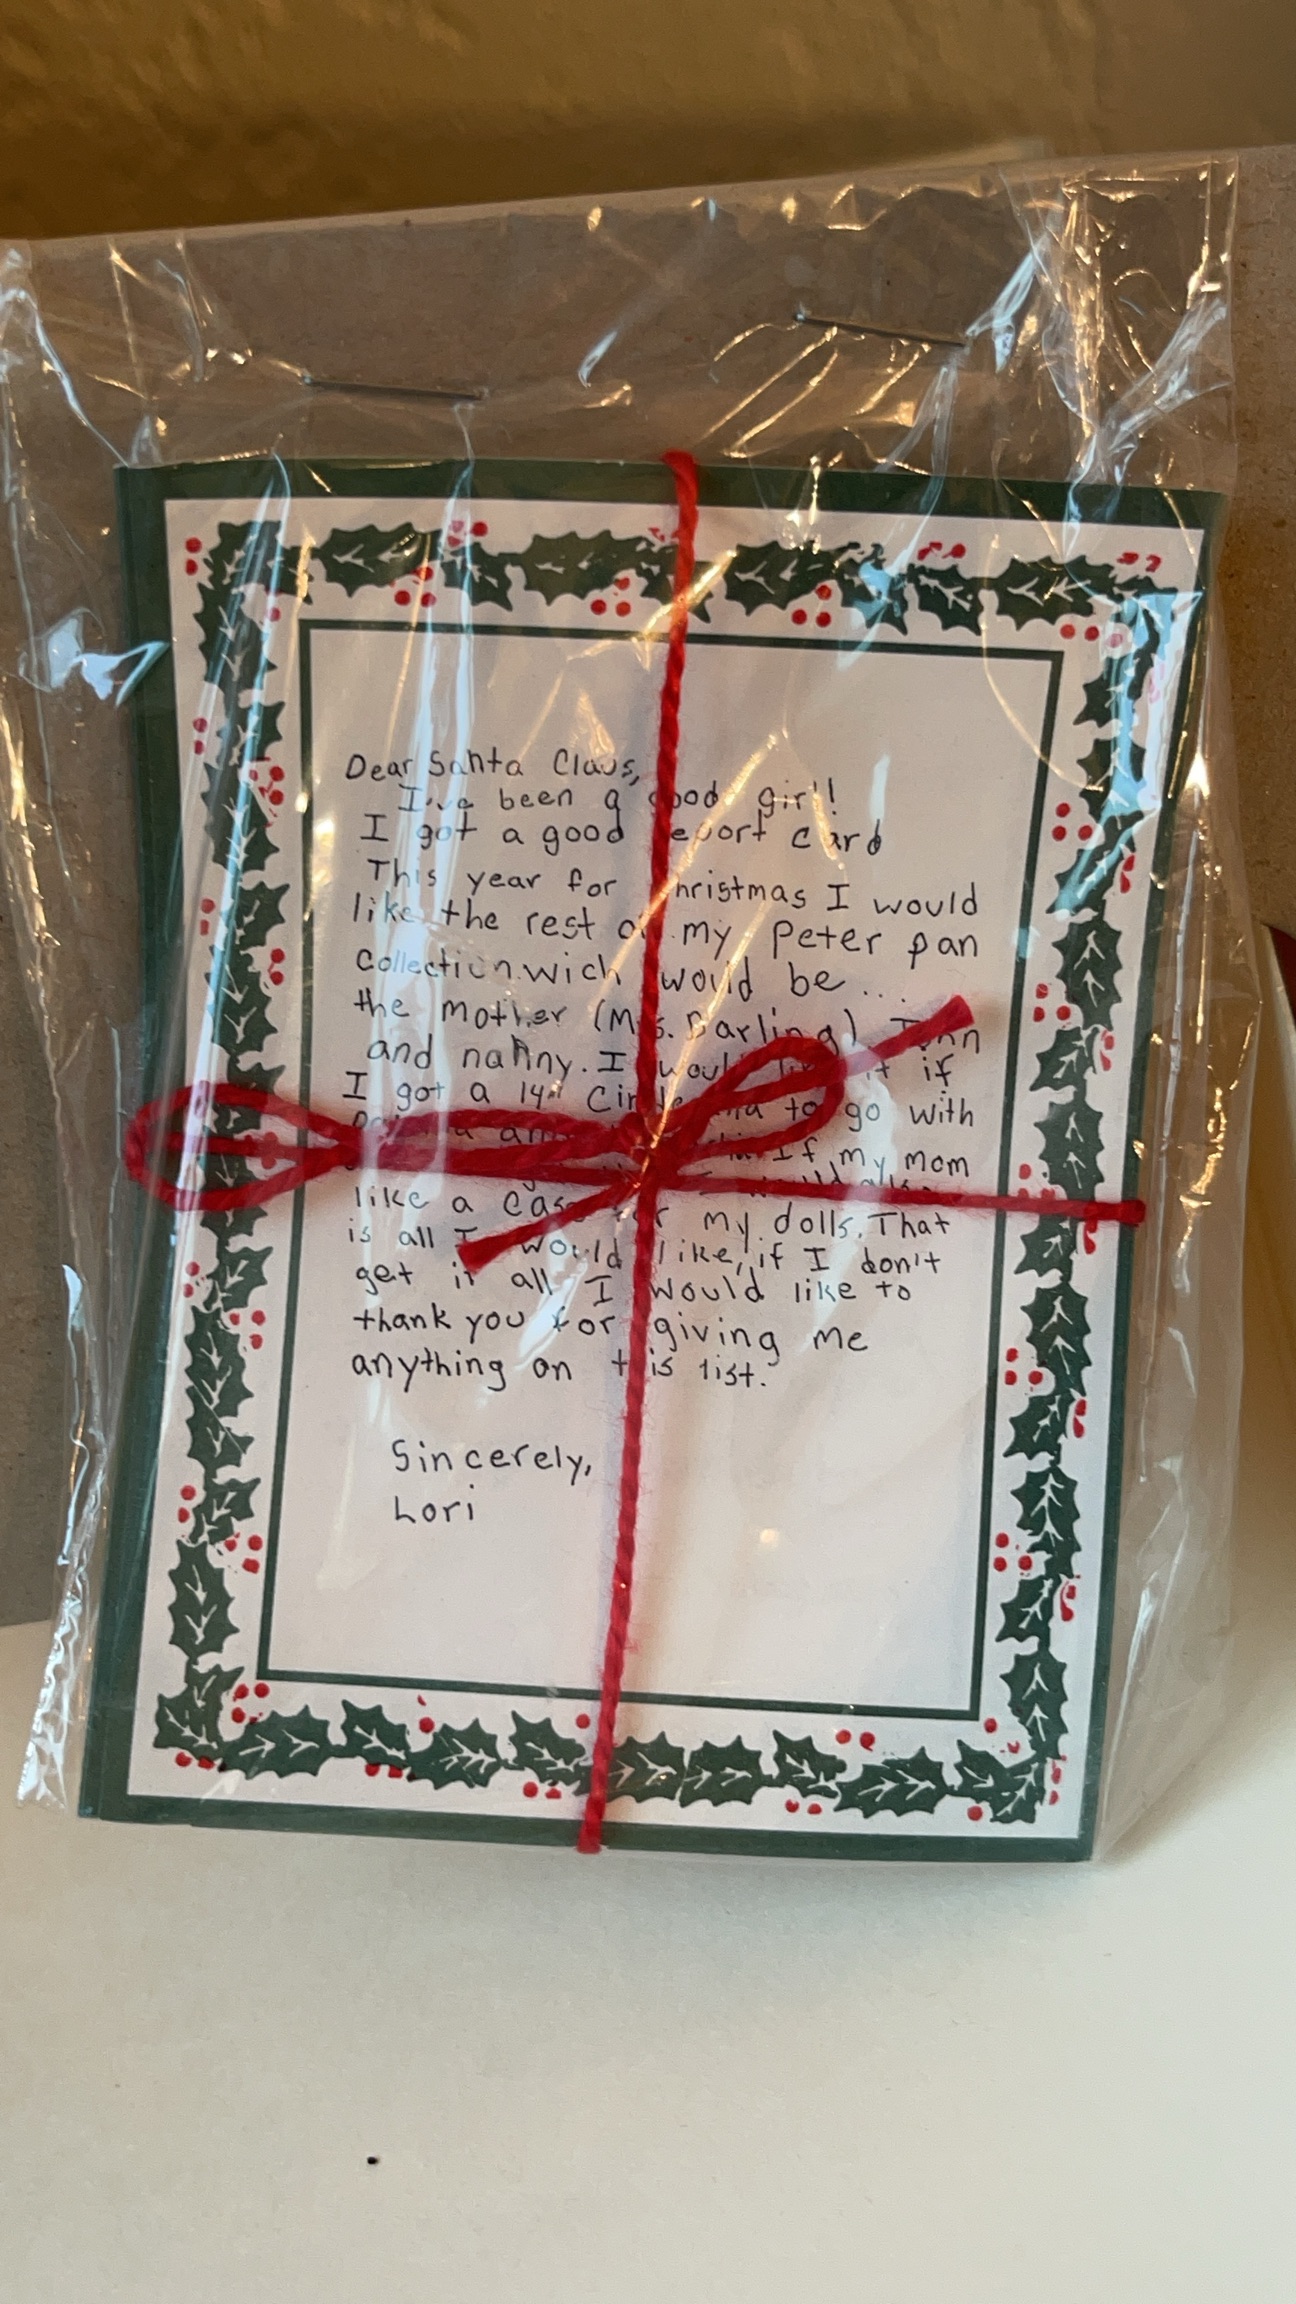 Dear Santa Claus,
I've been a good girl!
I got a good report card
This year for Christmas I would
like the rest of my Peter pan
Collection.wich would be...
the mother (Mrs. Darling)
and nanny. I would like it if
I got a 14" to go with
and If my mom
like a case for my dolls. That
is all I would like, if I don't
get it all I would like to
thank you for giving me
anything on this list.
Sincerely,
Lori